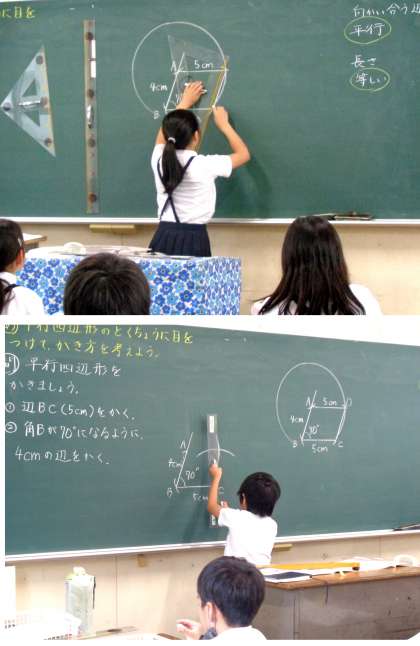 に目を
向かい合う辺
平行
長さ
等しい
A
5cm
4cm
B
平行四辺形のとくちょうに目を
つけて、かき方を考えよう。
平行四辺形を
かきましょう。
① 辺BC(5cm)をかく。
② 角Bが70°になるように、
4cmの辺をかく。
A
4cm
70°
B
5cm
C
A
5cm
D
4cm
70°
B
5cm
C